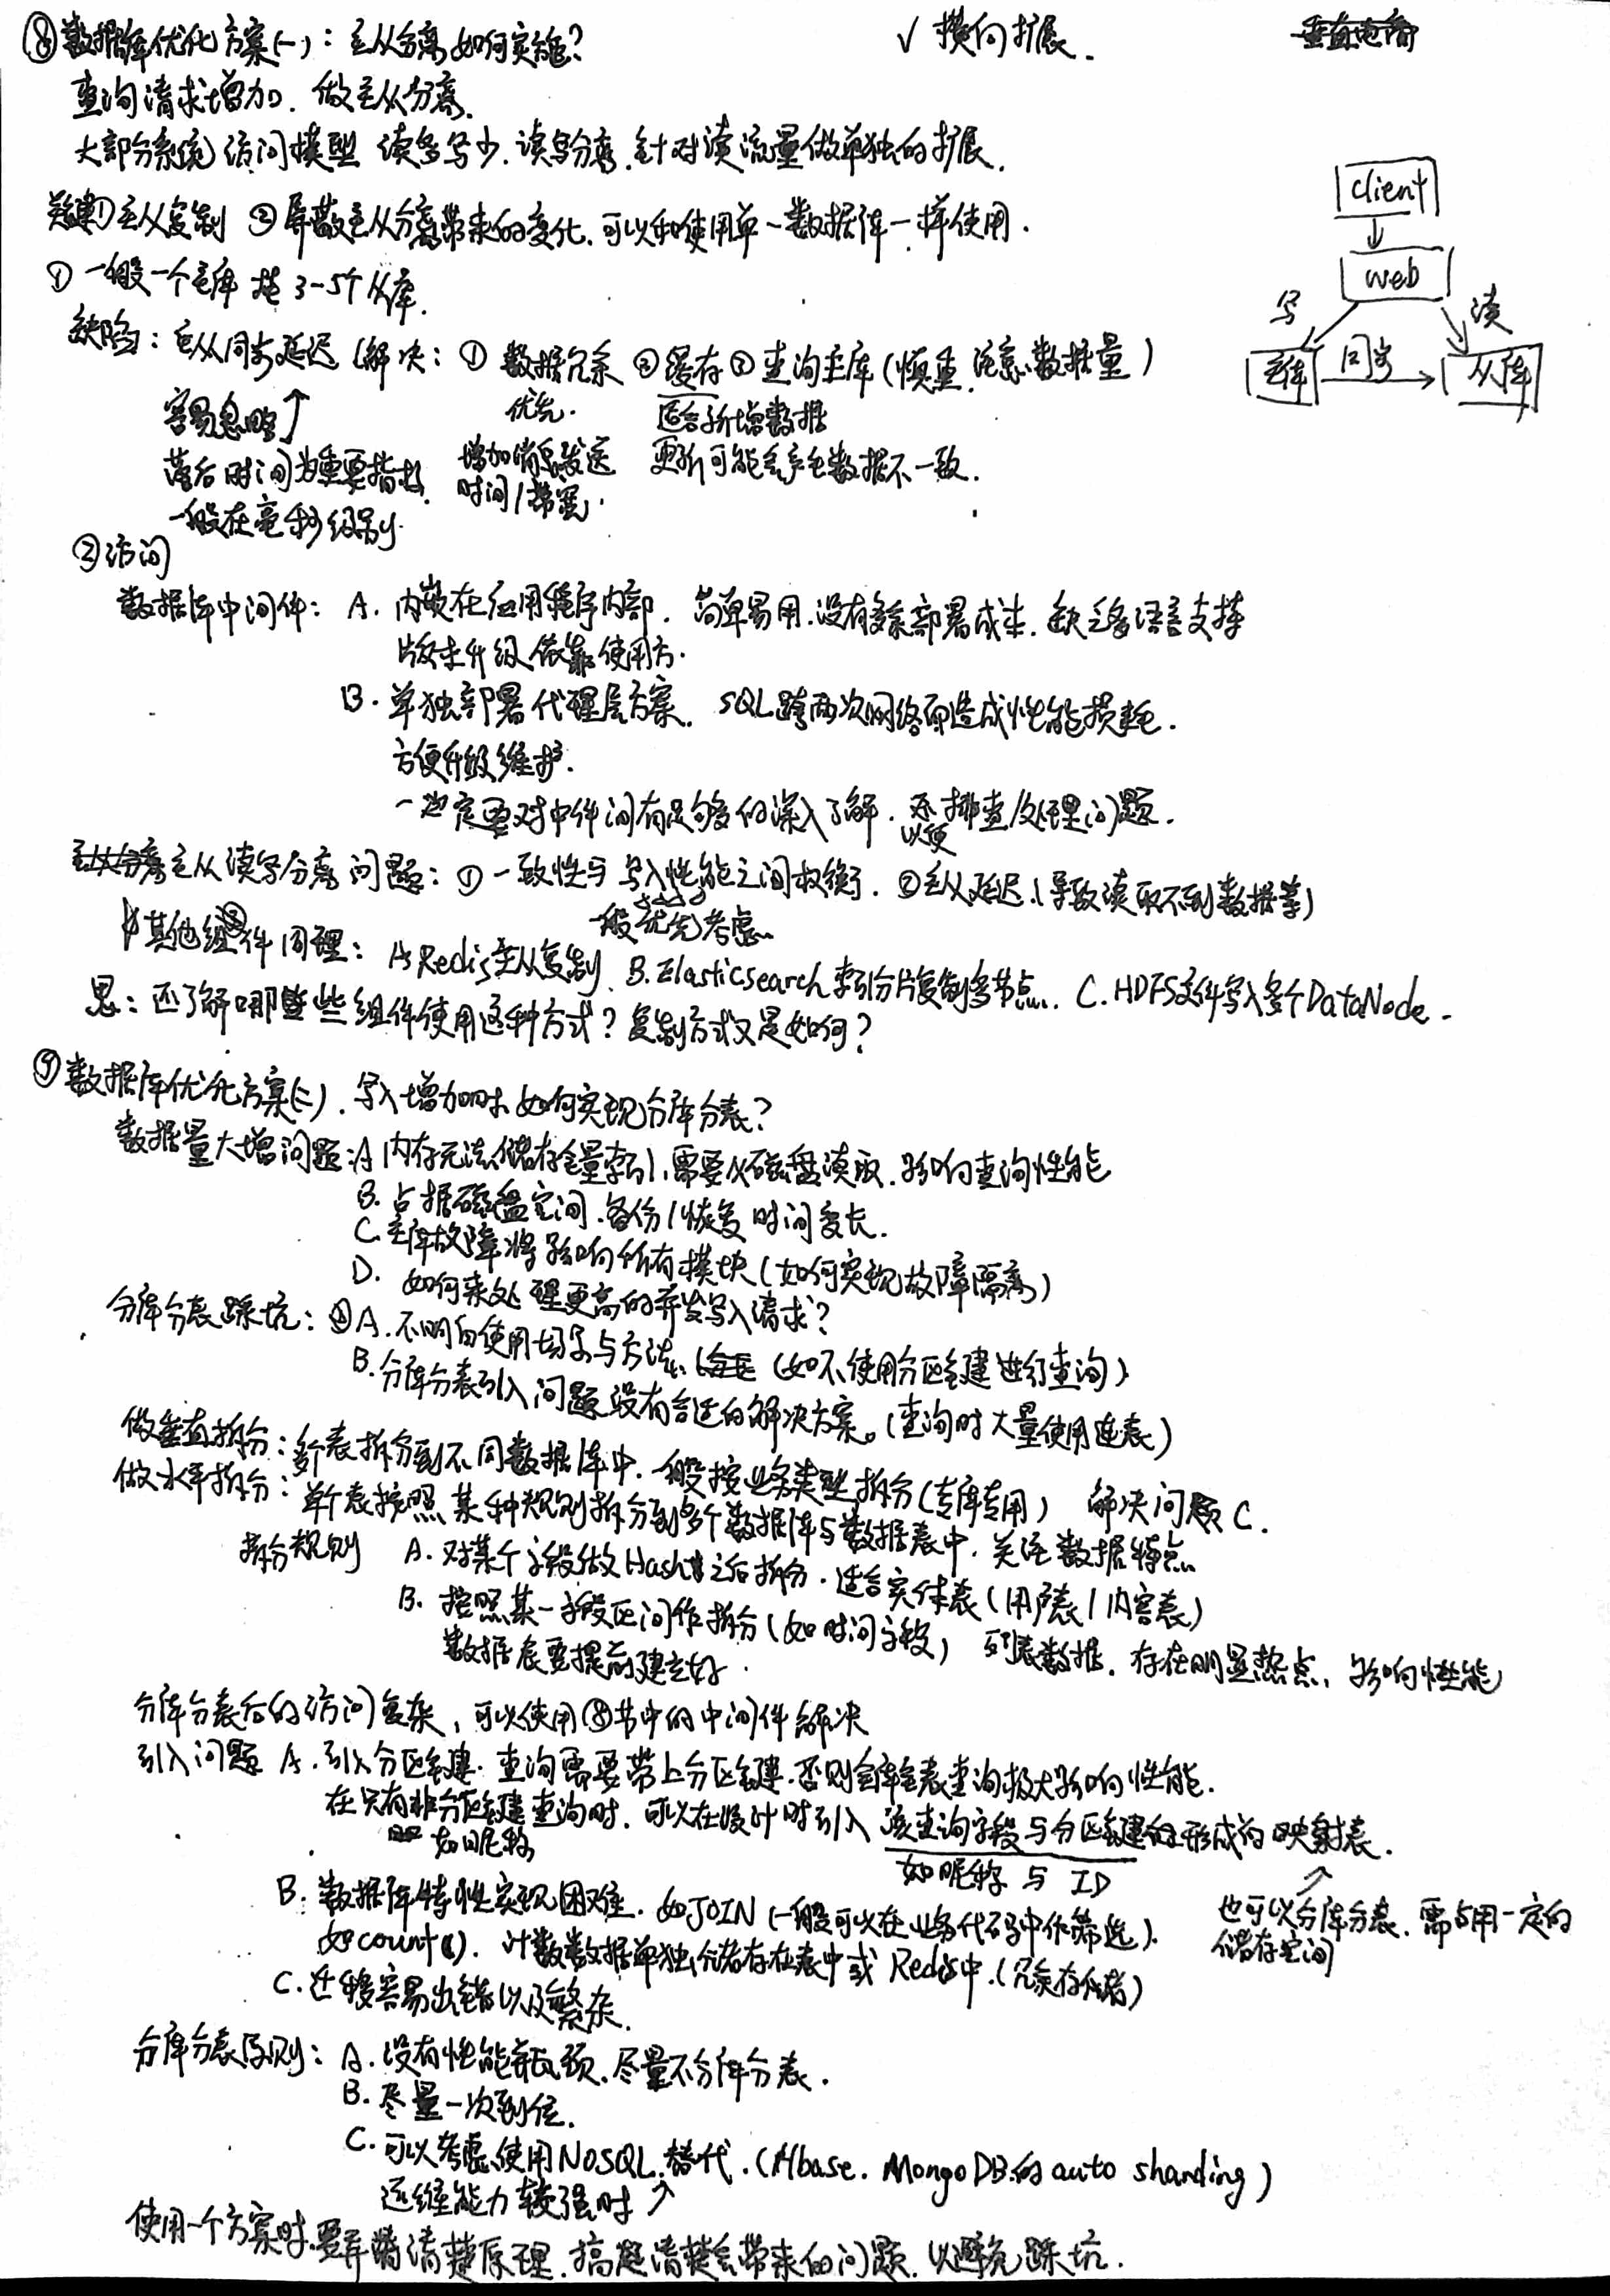 ⑧数据库优化方案(一)：主从分离如何实施？
√ 横向扩展.
垂直电商
查询请求增加. 做主从分离.
大部分系统访问模型 读多写少. 读写分离, 针对读流量做单独的扩展.
关键①主从复制 ②屏蔽主从分离带来的变化. 可以和使用单一数据库一样使用.
client
web
写
读
主库
同步
从库
① 一般一个主库 挂 3-5个从库.
缺陷：主从同步延迟 (解决：① 数据冗余 ②缓存 ③ 查询主库 (慎重, 注意数据量)
容易忽略↑
优先.
适合新增数据
落后时间为重要指标.
增加消息发送
更新可能会产生数据不一致.
时间/带宽.
一般在毫秒级别.
②访问
数据库中间件： A. 内嵌在应用程序内部. 简单易用. 没有多余部署成本. 缺乏多语言支持
版本升级依靠使用方.
B. 单独部署代理层方案. SQL跨两次网络而造成性能损耗.
方便升级维护.
一定要对中件间有足够的深入了解. 以便排查/处理问题.
主从读写分离问题：① 一致性与写入性能之间权衡. ②主从延迟 (导致读取不到数据等)
一般优先考虑
其他组件同理： A. Redis主从复制. B. Elasticsearch 索引分片复制多节点. C. HDFS文件写入多个DataNode.
思：还了解哪些组件使用这种方式？复制方式又是如何？
⑨数据库优化方案(二). 写入增加时如何实现分库分表？
数据量大增问题：A 内存无法储存全量索引, 需要从磁盘读取. 影响查询性能
B. 占据磁盘空间. 备份/恢复时间变长.
C. 主库故障将影响所有模块 (如何实现故障隔离)
D. 如何来处理更高的并发写入请求？
分库分表踩坑： A. 不明白使用场景与方法. (如不使用分区键进行查询)
B. 分库分表引入问题没有合适的解决方案。(查询时大量使用连表)
做垂直拆分：多个表拆分到不同数据库中. 一般按业务类型拆分 (专库专用) 解决问题C.
做水平拆分：单个表按照某种规则拆分到多个数据库与数据表中. 关注数据特点
拆分规则 A. 对某个字段做Hash之后拆分. 适合实体表 (用户表/内容表)
B. 按照某一字段区间作拆分 (如时间字段) 列表数据. 存在明显热点, 影响性能
数据表要提前建立好.
分库分表后的访问复杂, 可以使用⑧书中的中间件解决
引入问题 A. 引入分区键. 查询需要带上分区键. 否则全库全表查询极大影响性能.
在只有非分区键查询时. 可以在设计时引入 该查询字段与分区键形成的映射表.
如昵称
如昵称 与 ID
B. 数据库特性实现困难. 如JOIN (一般可以在业务代码中作筛选).
也可以分库分表. 需占用一定的
储存空间
如count(). 计数数据单独储存在表中或 Redis中. (冗余存储)
C. 迁移容易出错以及繁杂.
分库分表原则： A. 没有性能瓶颈. 尽量不分库分表.
B. 尽量一次到位.
C. 可以考虑使用NOSQL替代. (Hbase. MongoDB的auto sharding)
运维能力较强时 ↗
使用一个方案时. 要弄清楚原理. 搞清楚会带来的问题. 以避免踩坑.